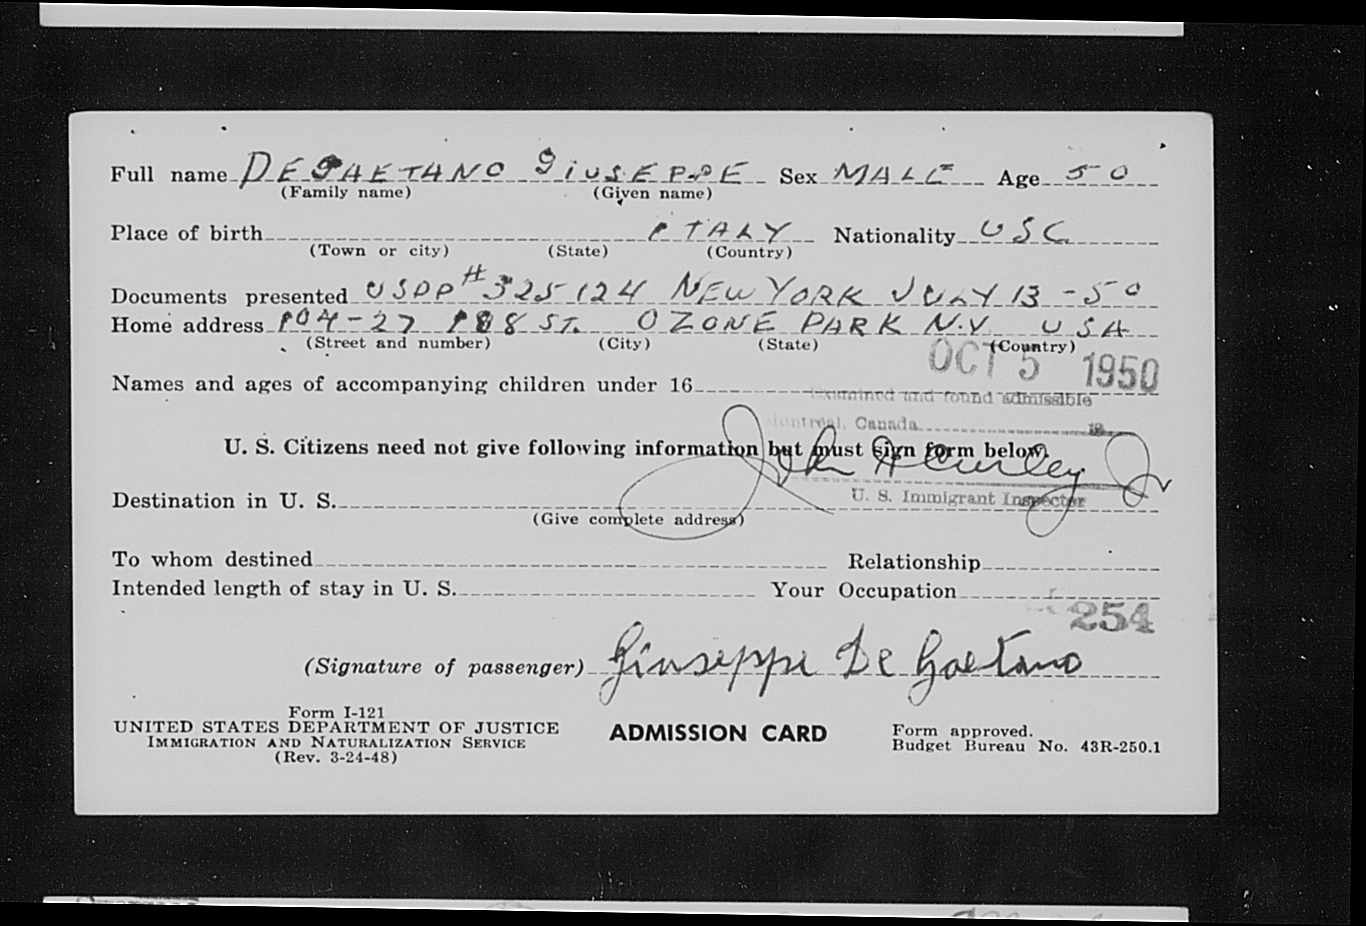 Full name DEGAETANO GIUSEPPE Sex MALE Age 50
(Family name) (Given name)
Place of birth ITALY Nationality USC
(Town or city) (State) (Country)
Documents presented USPP # 325124 NEW YORK JULY 13-50
Home address 104-27 108 ST. OZONE PARK N.Y. USA
(Street and number) (City) (State) (Country)
OCT 5 1950
Names and ages of accompanying children under 16
Examined and found admissible
Montreal, Canada 19
U. S. Citizens need not give following information but must sign form below.
John
Jr
U. S. Immigrant Inspector
Destination in U. S.
(Give complete address)
To whom destined Relationship
Intended length of stay in U. S. Your Occupation
254
(Signature of passenger) Giuseppe De Gaetano
Form I-121
UNITED STATES DEPARTMENT OF JUSTICE
IMMIGRATION AND NATURALIZATION SERVICE
(Rev. 3-24-48)
ADMISSION CARD
Form approved.
Budget Bureau No. 43R-250.1